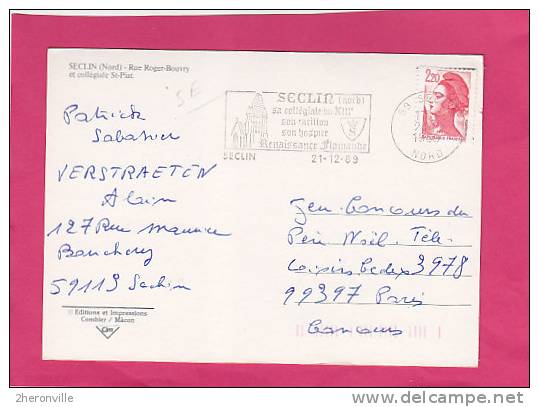 SECLIN (Nord) - Rue Roger-Bouvry
et collégiale St-Piat.
SECLIN (nord)
sa collégiale du XIIIe
son carillon
son hospice
Renaissance Flamande
SECLIN 21-12-89
59 SECLIN
NORD
2,20
Patrick
Sabatier
VERSTRAETEN
Alain
127 Rue Maurice
Bouchery
59113 Seclin
Jeu Concours du
Père Noël. Télé-
Loisirs Cedex 3978
99397 Paris
Concours
© Editions et Impressions
Combier / Mâcon
Cim
2heronville
delcampe.net